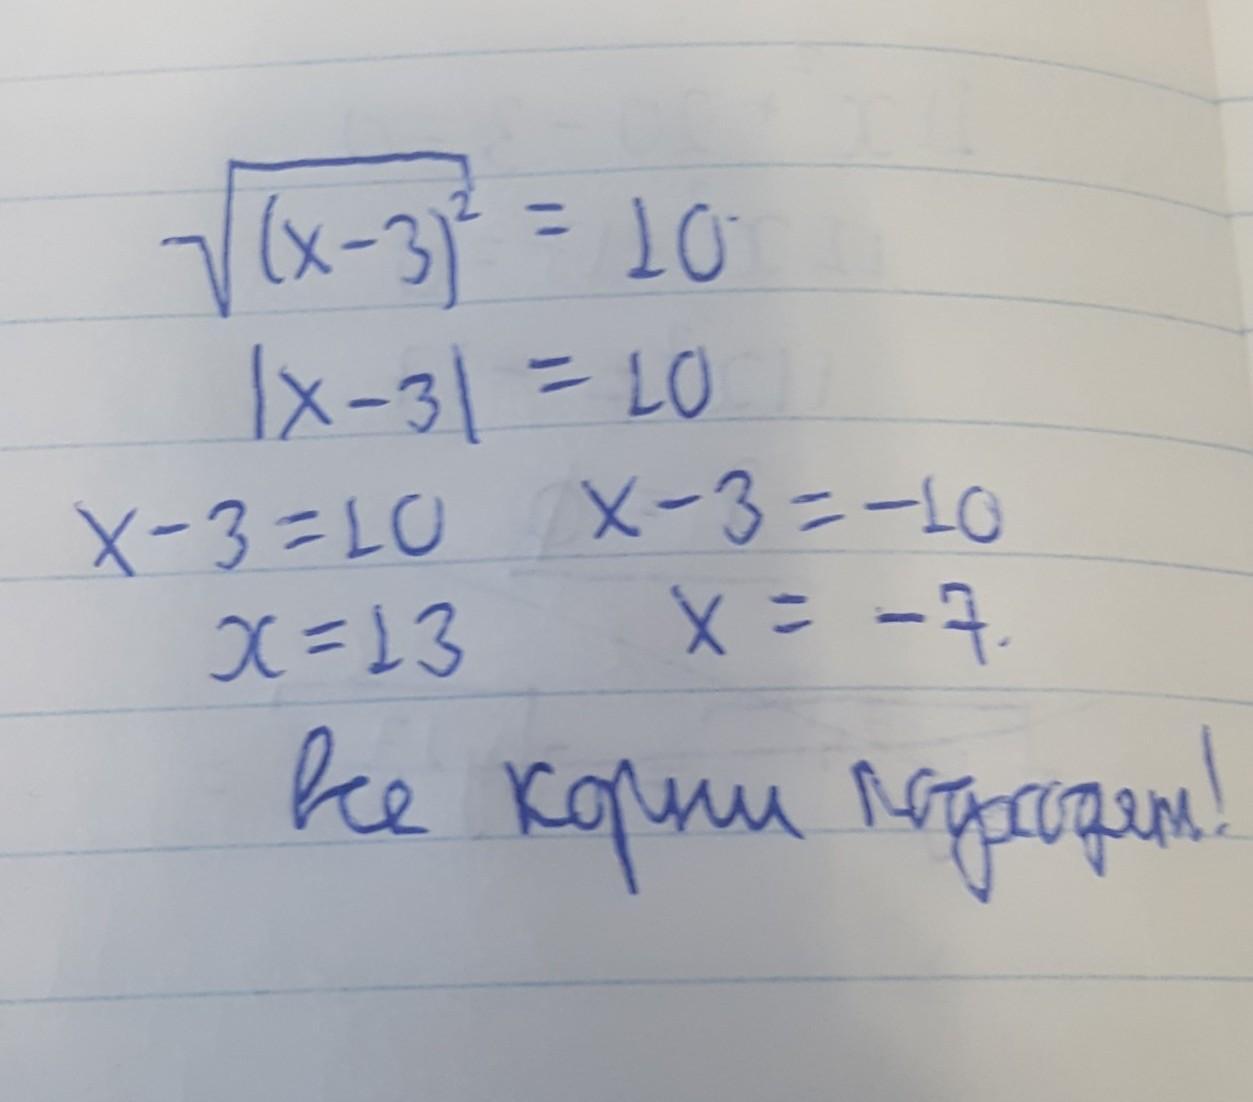 √(x-3)² = 10
|x-3| = 10
x-3=10 x-3=-10
x=13 x = -7.
Все корни подходят!